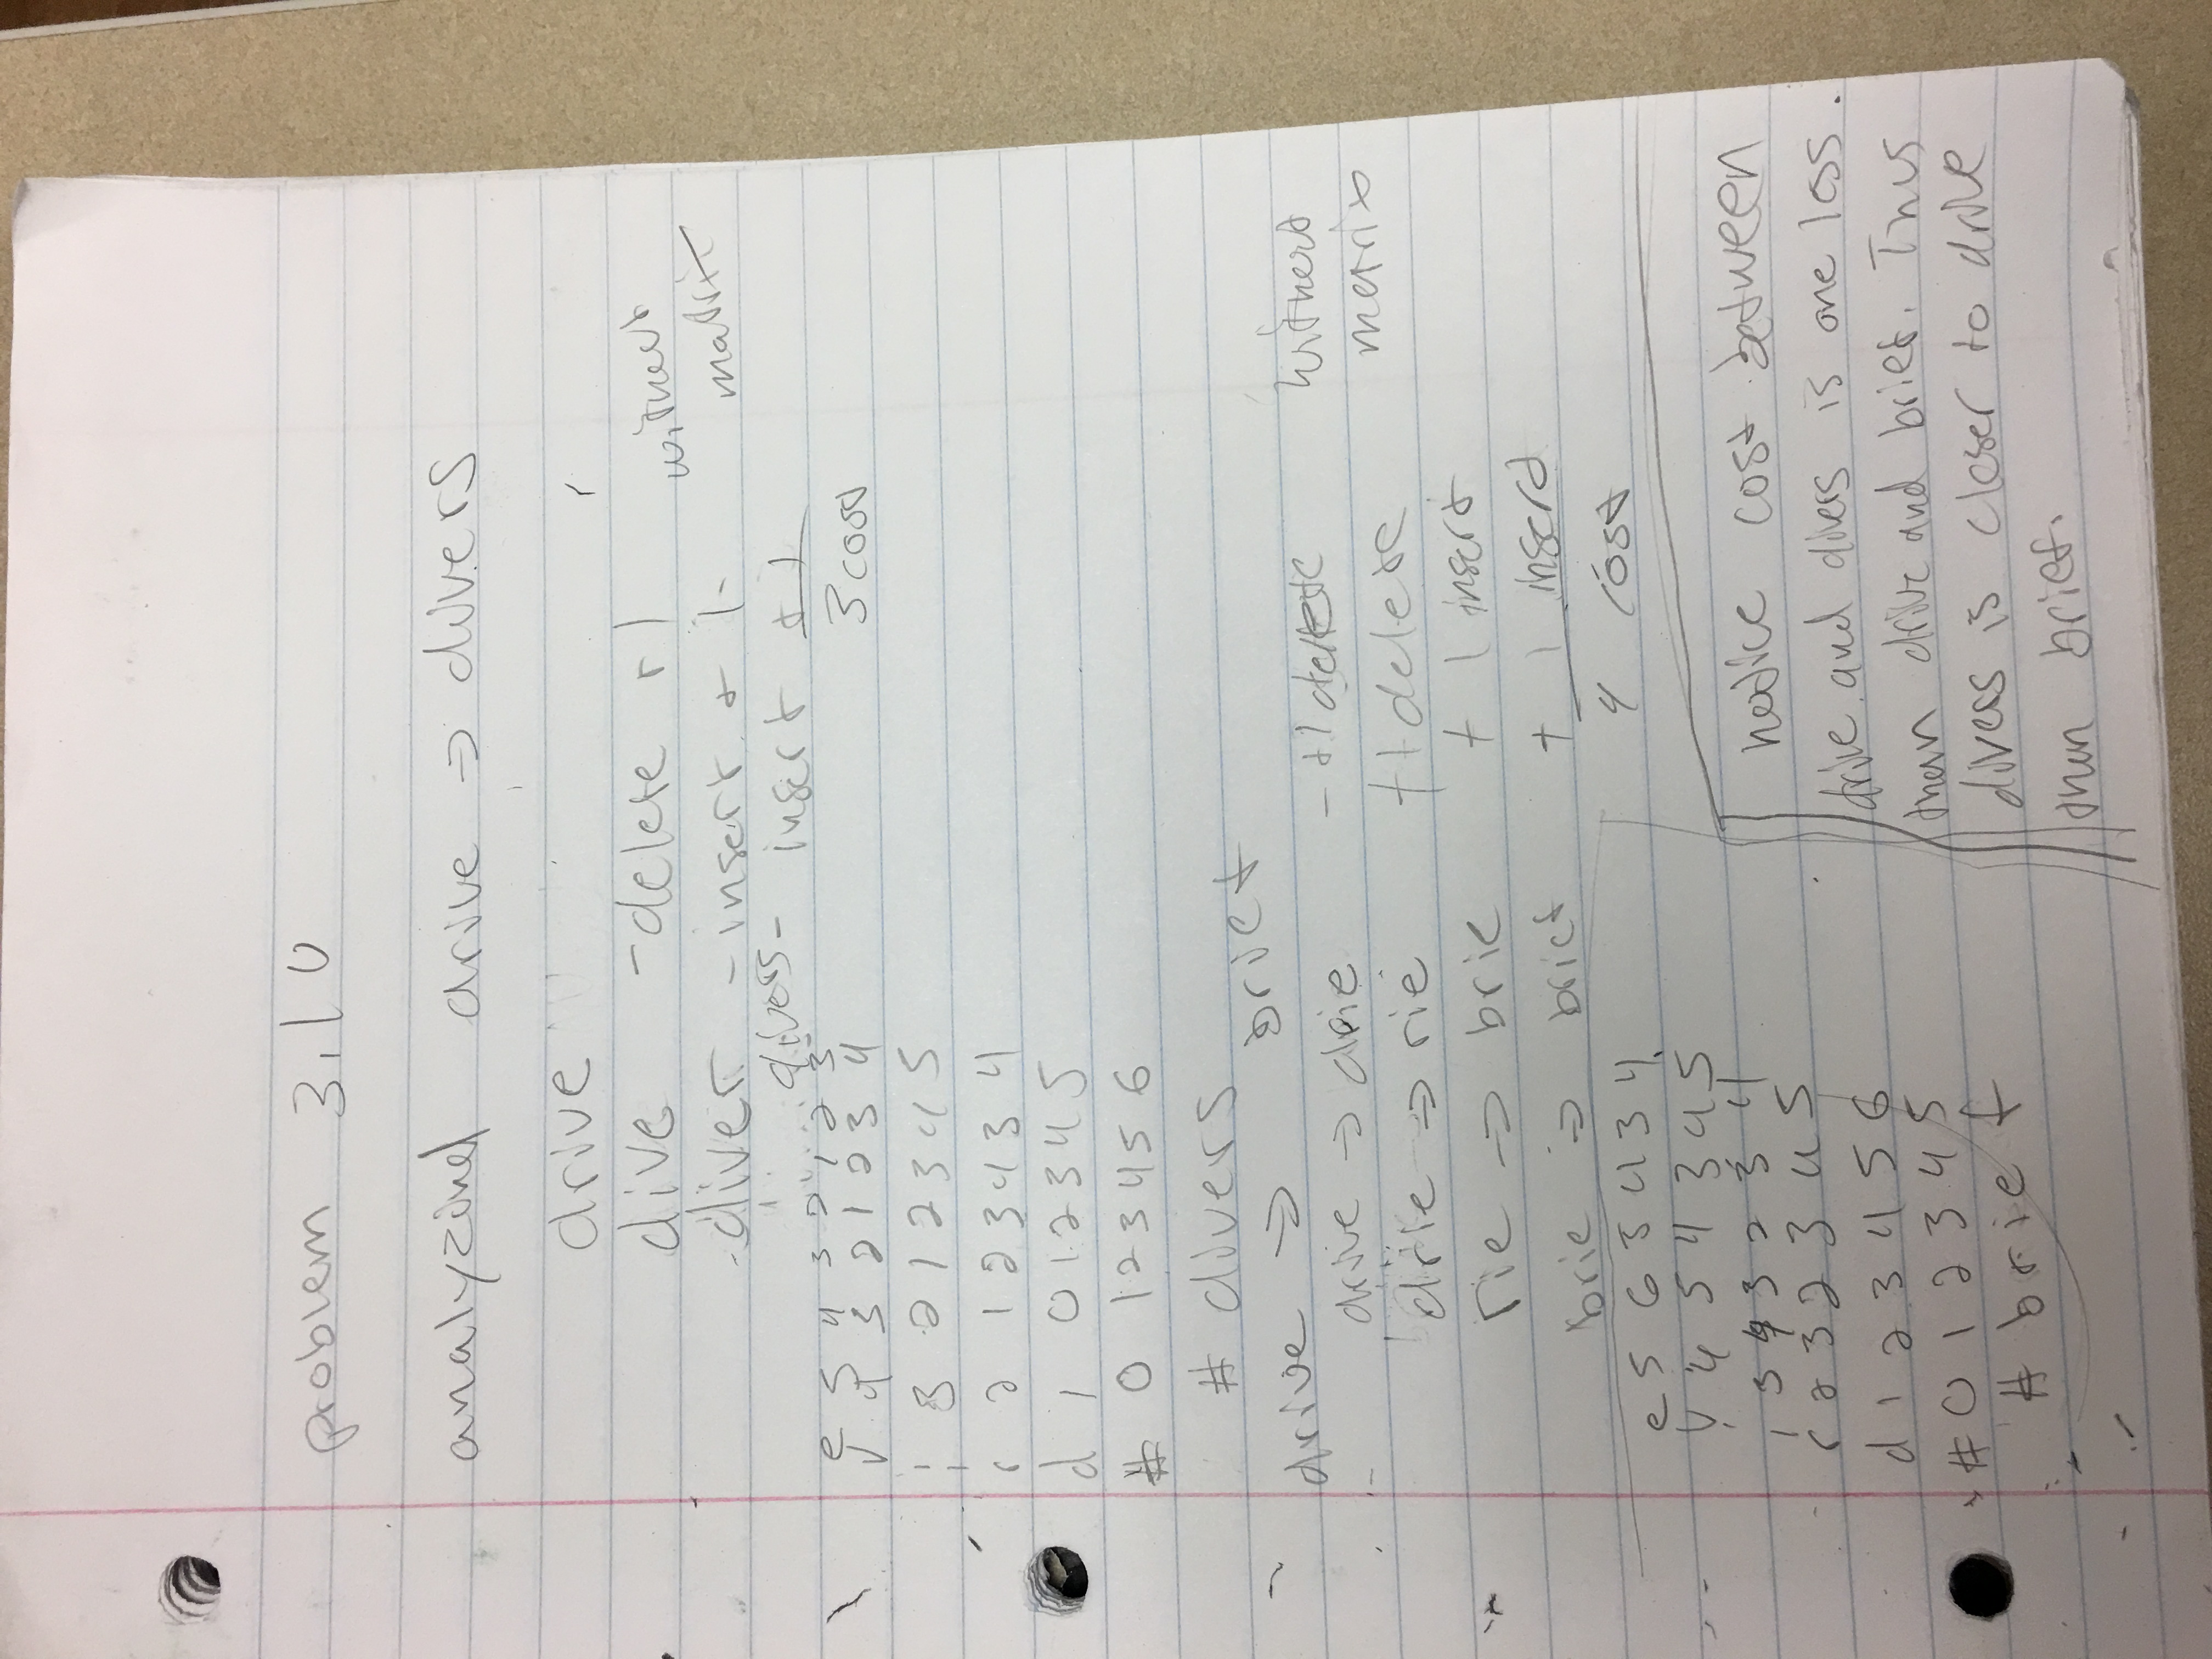 problem 3.10
analyzing drive → divers
drive
dive - delete +1
without
diver - insert + 1
matrix
divers - insert +1
3 cost
e 5 4 3 2 1 2 3
v 4 3 2 1 2 3 4
i 3 2 1 2 3 4 5
r 2 1 2 3 4 3 4
d 1 0 1 2 3 4 5
# 0 1 2 3 4 5 6
# divers
drive → brief
drive → drie - +1 delete
without
drie → rie +1 delete
matrix
rie → brie + 1 insert
brie → brief + 1 insert
4 cost
e 5 6 5 4 3 4
v 4 5 4 3 4 5
i 3 4 3 2 3 4
r 2 3 2 3 4 5
d 1 2 3 4 5 6
# 0 1 2 3 4 5
# brief
notice cost between
drive and divers is one less
than drive and brief. Thus
divers is closer to drive
than brief.